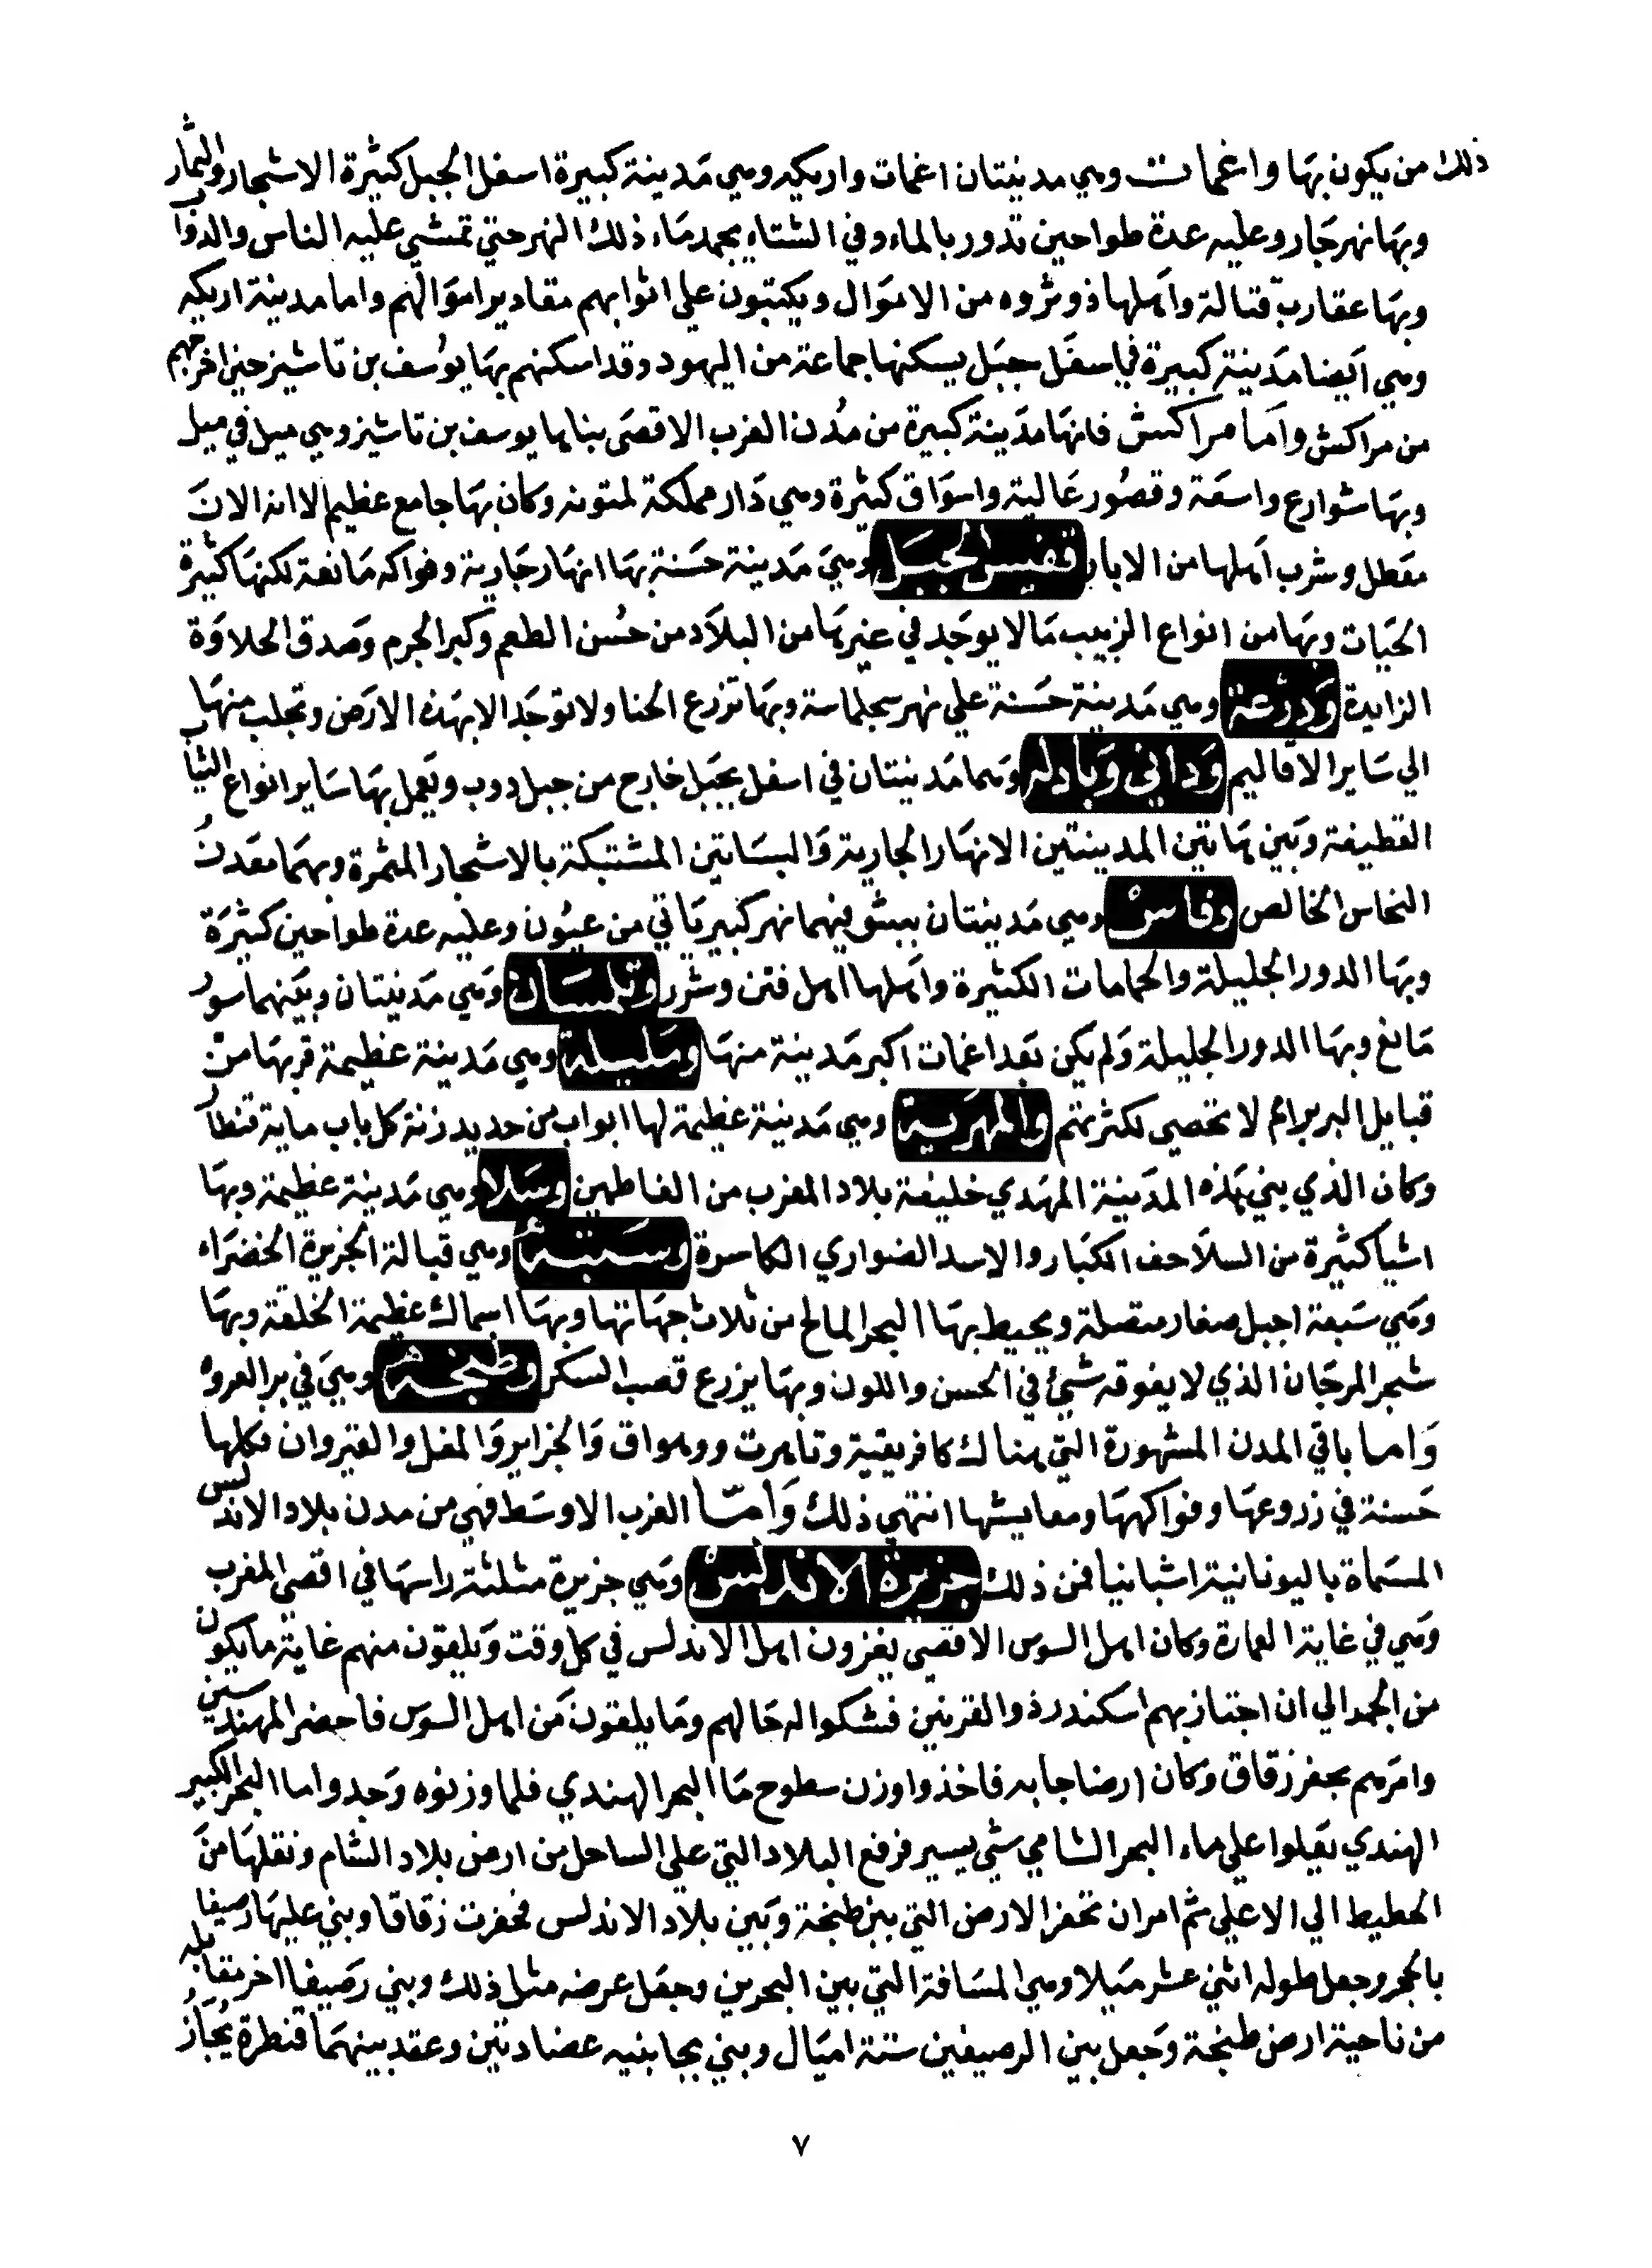 ذلك من يكون بها واغمات وهي مدينتان اغمات واريكه وهي مدينة كبيرة اسفل الجبل كثيرة الاشجار والثمار
وبها نهر جار وعليه عدة طواحين تدور بالماء وفي الشتاء يجمد ماء ذلك النهر حتي تمشي عليه الناس والدواب
وبها عقارب قتالة واهلها ذو ثروه من الاموال ويكتبون علي اثوابهم مقادير اموالهم واما مدينة اريكه
وهي ايضا مدينة كبيرة في اسفل جبل يسكنها جماعة من اليهود وقد اسكنهم بها يوسف بن تاشيز حين اخرجهم
من مراكش واما مراكش فانها مدينة كبيرة من مدن الغرب الاقصى بناها يوسف بن تاشيز وهي ميل في ميل
وبها شوارع واسعة وقصور عالية واسواق كثيرة وهي دار مملكة لمتونه وكان بها جامع عظيم الا انه الان
معطل وشرب اهلها من الابار قفيس الجبل وهي مدينة حسنة بها انهار جارية وفواكه مانعة لكنها كثيرة
الحيات وبها من انواع الزبيب ما لا يوجد في غيرها من البلاد من حسن الطعم وكبر الجرم وصدق الحلاوة
الزايدة ودرعة وهي مدينة حسنة علي نهر سجلماسة وبها تزرع الحنا ولا توجد الا بهذه الارض وتجلب منها
الي ساير الاقاليم وداني وبادله وهما مدينتان في اسفل بجبل خارج من جبل دوب ويعمل بها ساير انواع الثياب
القطيفة وبين هاتين المدينتين الانهار الجارية والبساتين المشتبكة بالاشجار المثمرة وبهما معدن
النحاس الخالص وفاس وهي مدينتان بينهما نهر كبير ياتي من عيون وعليه عدة طواحين كثيرة
وبها الدور الجليلة والحمامات الكثيرة واهلها اهل فتن وشرر وتلمسان وهي مدينتان وبينهما سور
مانع وبها الدور الجليلة ولم يكن بعد اغمات اكبر مدينة منها ومليلة وهي مدينة عظيمة قربها من
قبايل البربر امم لا تحصى لكثرتهم والمهدية وهي مدينة عظيمة لها ابواب من حديد زنة كل باب ماية قنطار
وكان الذي بني هذه المدينة المهدي خليفة بلاد المغرب من الفاطمين وسلا وهي مدينة عظيمة وبها
اشيا كثيرة من السلاحف الكبار والاسد الضواري الكاسرة وسبتة وهي قبالة الجزيرة الخضراء
وهي سبعة اجبل صغار متصلة ويحيط بها البحر المالح من ثلاث جهاتها وبها اسماك عظيمة الخلقة وبها
شجر المرجان الذي لا يفوقه شئ في الحسن واللون وبها يزرع قصب السكر وطنجة وهي في بر العدوه
واما باقي المدن المشهورة التي هناك كافريقية وتاهرت ووهواق والجزاير والمغل والقيروان فكلها
حسنة في زروعها وفواكهها ومعايشها انتهي ذلك واما الغرب الاوسط فهي من مدن بلاد الاندلس
المسماة باليونانية اشبانيا فمن ذلك جزيرة الاندلس وهي جزيرة مثلثة راسها في اقصى المغرب
وهي في غاية العمارة وكان اهل السوس الاقصي يغزون اهل الاندلس في كل وقت ويلقون منهم غاية ما يكون
من الجهد الي ان اجتاز بهم اسكندر ذو القرنين فشكوا له حالهم وما يلقون من اهل السوس فاحضر المهندسين
وامرهم بحفر زقاق وكان ارضا جابه فاخذوا وزن سطوح ما البحر الهندي فلما وزنوه وجدوا ما البحر الكبير
الهندي يعلوا علي ماء البحر الشامي شي يسير فرفع البلاد التي علي الساحل من ارض بلاد الشام ونقلها من
الحطيط الي الاعلي ثم امر ان تحفر الارض التي بين طنجة وبين بلاد الاندلس فحفرت زقاقا وبني عليها رصيفا
بالحجر وجعل طوله اثني عشر ميلا وهي المسافة التي بين البحرين وجعل عرضه مثل ذلك وبني رصيفا اخر مقابله
من ناحية ارض طنجة وجعل بين الرصيفين ستة اميال وبني بجانبيه عضادتين وعقد بينهما قنطرة يجاز
٧